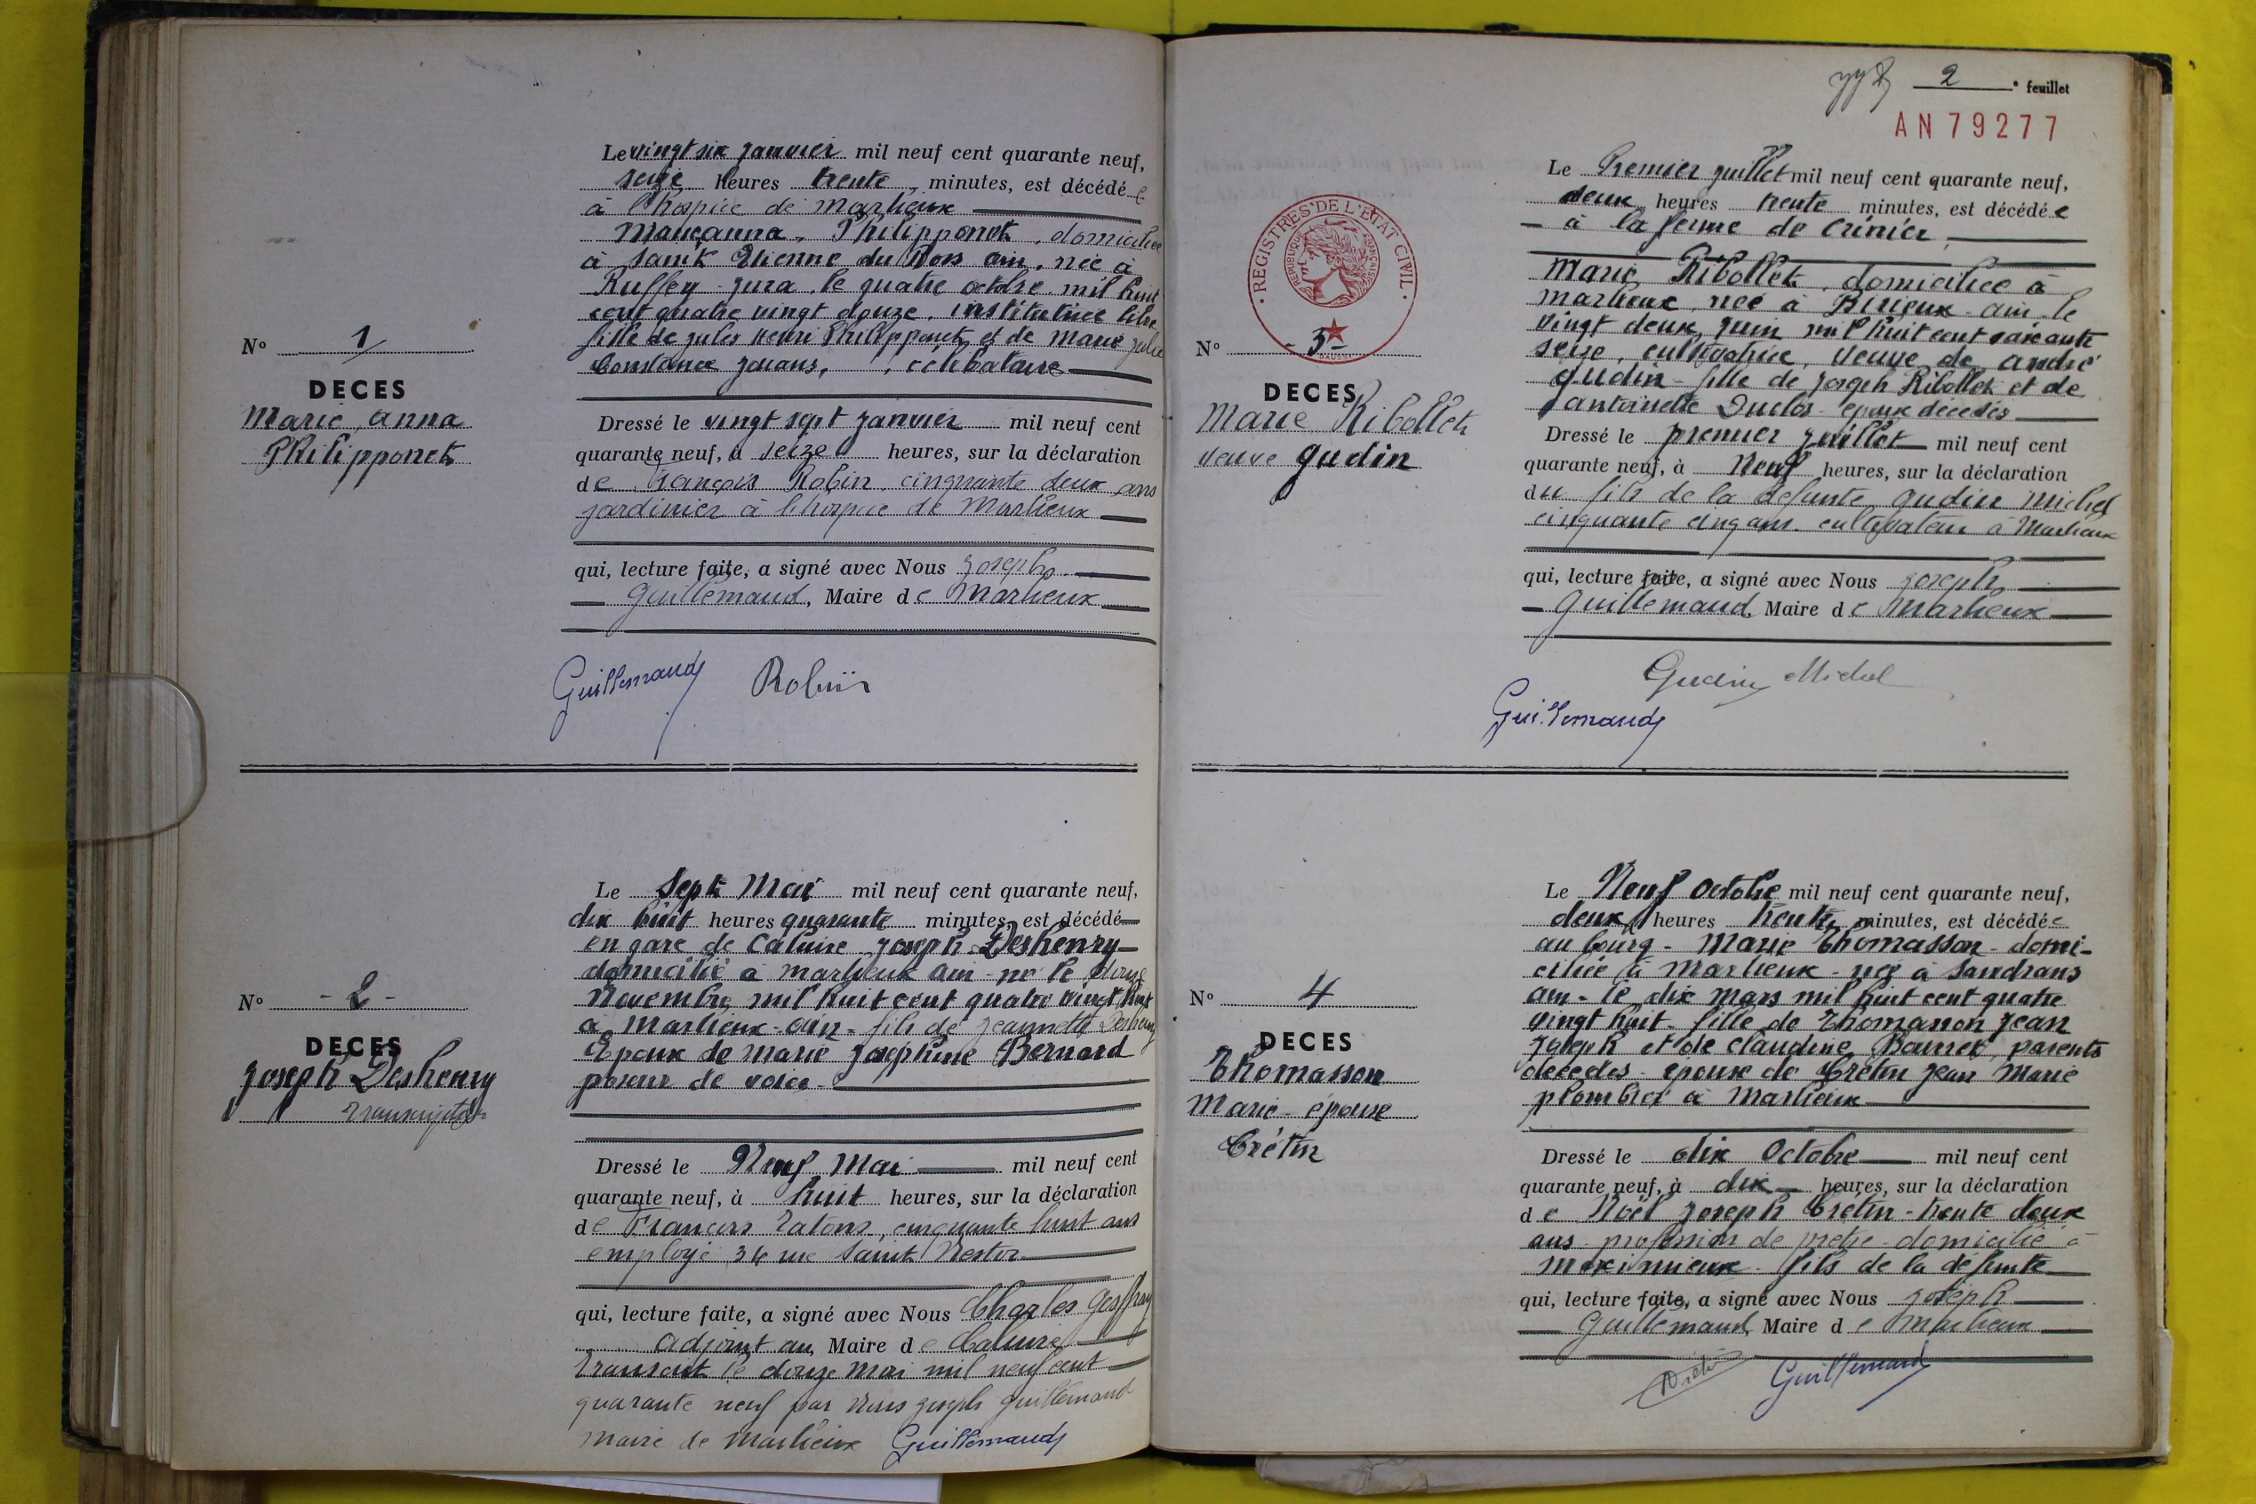 Le vingt six janvier mil neuf cent quarante neuf,
seize heures trente minutes, est décédée
à l'hospice de Marlieux
Marie anna Philipponet, domiciliée
à Saint Etienne du Bois ain, née à
Ruffey Jura le quatre octobre mil huit
cent quatre vingt douze, institutrice libre
fille de Jules Henri Philipponet et de Marie Julie
Constance, célibataire
Nº 1
DECES
Marie anna
Philipponet
Dressé le vingt sept janvier mil neuf cent
quarante neuf, à seize heures, sur la déclaration
de François Robin, cinquante deux ans
jardinier à l'hospice de Marlieux
qui, lecture faite, a signé avec Nous Joseph
Guillemaud, Maire de Marlieux
Guillemaud Robin
Le Sept Mai mil neuf cent quarante neuf,
dix huit heures quarante minutes, est décédé
en gare de Caluire Joseph Deshenry
domicilié à Marlieux ain - né le douze
Novembre mil huit cent quatre vingt huit
à Marlieux - ain - fils de Jeannette Deshenry
Epoux de Marie Josephine Bernard
poseur de voies
Nº - 2 -
DECES
Joseph Deshenry
Transcription
Dressé le Neuf Mai mil neuf cent
quarante neuf, à huit heures, sur la déclaration
de François, cinquante huit ans
employé 34 rue Saint Nestor
qui, lecture faite, a signé avec Nous Charles Geoffray
adjoint au Maire de Caluire
Transcrit le douze mai mil neuf cent
quarante neuf par Nous Joseph Guillemaud
Maire de Marlieux Guillemaud
2 e feuillet
AN 79277
Le Premier juillet mil neuf cent quarante neuf,
deux heures trente minutes, est décédée
à la ferme de Crinier
Marie Ribollet, domiciliée à
Marlieux, née à Birieux - ain - le
vingt deux juin mil huit cent soixante
seize, cultivatrice, veuve de andré
Gudin - fille de Joseph Ribollet et de
antoinette Duclos - époux décédés
REGISTRES DE L'ETAT CIVIL
REPUBLIQUE FRANÇAISE
Nº - 3 -
DECES
Marie Ribollet
veuve Gudin
Dressé le premier juillet mil neuf cent
quarante neuf, à Neuf heures, sur la déclaration
du fils de la defunte Gudin Michel
cinquante cinq ans cultivateur à Marlieux
qui, lecture faite, a signé avec Nous Joseph
Guillemaud Maire de Marlieux
Gudin Michel
Guillemaud
Le Neuf Octobre mil neuf cent quarante neuf,
deux heures trente minutes, est décédée
au bourg - Marie Thomasson - domi-
ciliée à Marlieux - née à Sandrans
ain - le dix Mars mil huit cent quatre
vingt huit - fille de Thomasson Jean
Joseph et de Claudine, parents
décédés - épouse de Crétin Jean Marie
plombier à Marlieux
Nº 4
DECES
Thomasson
Marie - épouse
Crétin
Dressé le dix Octobre mil neuf cent
quarante neuf, à dix heures, sur la déclaration
de Noël Joseph Crétin - trente deux
ans - profession de prêtre - domicilié à
Meximieux - fils de la défunte
qui, lecture faite, a signé avec Nous Joseph
Guillemaud Maire de Marlieux
Guillemaud